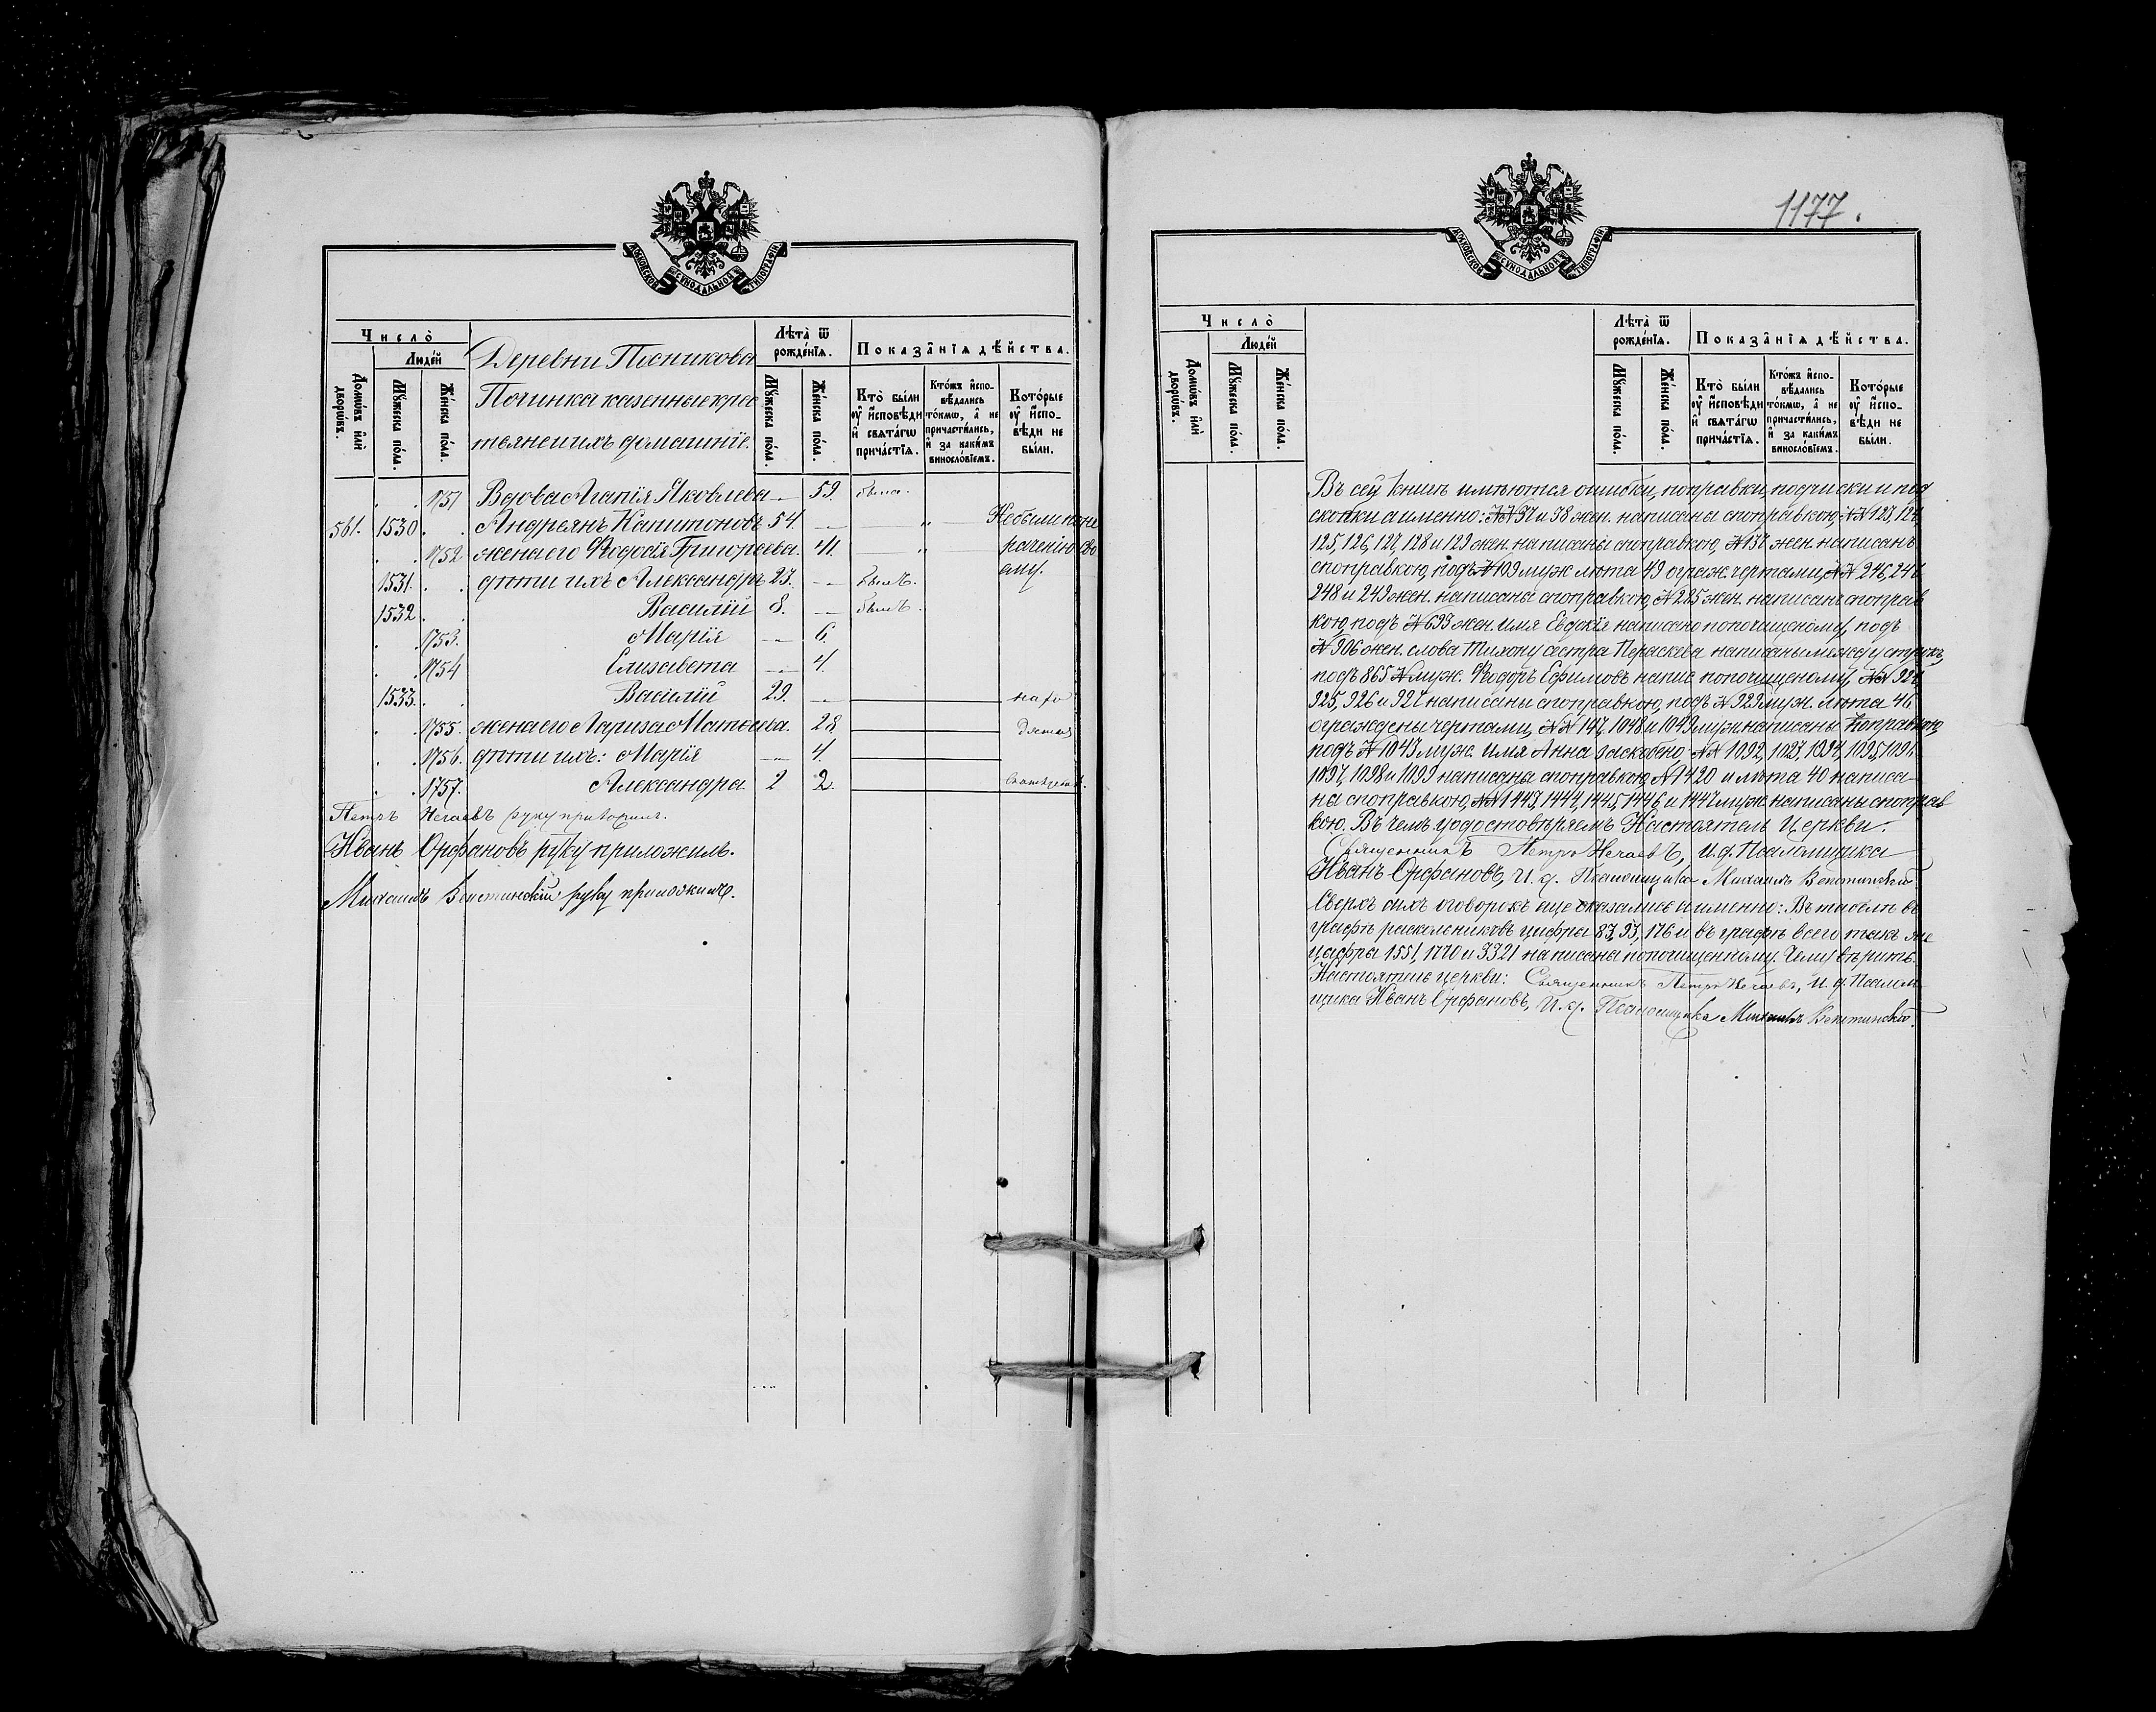 МОСКОВСКОЙ СѴНОДАЛЬНОЙ ТИПОГРАФІИ
Число̀
Люде́й
Домѡ́въ и҆лѝ дворѡ́въ.
Мꙋ́жеска по́ла.
Же́нска по́ла.
Деревни Посникова
Починка казенные крес
тьяне и ихъ домашніе.
Лѣта̀ ѿ рожде́нїѧ.
Мꙋ́жеска по́ла.
Же́нска по́ла.
Показа̂нїѧ дѣ́йства.
Кто̀ бы́ли оу҆ и҆сповѣ́ди и҆ свѧта́гѡ прича́стїѧ.
Кто́жъ и҆спо-
вѣ́дались
то́кмѡ, а҆ не
причасти́лись,
и҆ за каки́мъ
виносло́вїемъ.
Кото́рые оу҆ и҆спо-
вѣ́ди не бы́ли.
1751 Вдова Агапія Яковлева — 59. была.
561. 1530. Андреянъ Капитоновъ 54. — „ — Небыли по не
1752 жена его Ѳеодосія Григорьева. 41. — „ — раченію сво
ему.
1531. дѣти ихъ Александръ 23. — былъ.
1532 Василій 8. — былъ.
1753. Марія — 6.
1754 Елизавета — 4.
1533. Василій 29. —
1755. жена его Лариса Матѳеева. 28.
1756. дѣти ихъ: Марія — 4.
1757. Александра 2 2.
Петръ Нечаевъ руку приложилъ.
Иванъ Орфановъ руку приложилъ.
Михаилъ руку приложилъ.
1177.
МОСКОВСКОЙ СѴНОДАЛЬНОЙ ТИПОГРАФІИ
Число̀
Люде́й
Домѡ́въ и҆лѝ дворѡ́въ.
Мꙋ́жеска по́ла.
Же́нска по́ла.
Лѣта̀ ѿ рожде́нїѧ.
Мꙋ́жеска по́ла.
Же́нска по́ла.
Показа̂нїѧ дѣ́йства.
Кто̀ бы́ли оу҆ и҆сповѣ́ди и҆ свѧта́гѡ прича́стїѧ.
Кто́жъ и҆спо-
вѣ́дались
то́кмѡ, а҆ не
причасти́лись,
и҆ за каки́мъ
виносло́вїемъ.
Кото́рые оу҆ и҆спо-
вѣ́ди не бы́ли.
Въ сей книгѣ имѣются ошибки, поправки, подчиски и под
скопки а именно: №№ 37 и 38 жен. написаны споправкою, №№ 123, 124,
125, 126, 127, 128 и 129 жен. написаны споправкою, № 137 жен. написанъ
споправкою, подъ № 109 муж лѣта 49 ограж. чертами, №№ 246, 247
248 и 249 жен. написаны споправкою, № 285 жен. написанъ споправ
кою, подъ № 693 жен. имя Евдокія написано попочищеному, подъ
№ 906 жен. слова Тихону сестра Параскева написаны между строкъ,
подъ 865 № муж. Ѳеодоръ Ефимовъ напис попочищеному, №№ 924
925, 926 и 927 написаны споправкою, подъ № 929 муж. лѣта 46
ограждены чертами, №№ 147, 1048 и 1049 муж. написаны поправкою,
подъ № 1043 муж. имя Анна заскоблено, №№ 1092, 1093, 1094, 1095, 1096
1097, 1098 и 1099 написаны споправкою, № 1420 и лѣта 40 написа-
ны споправкою, №№ 1443, 1444, 1445, 1446 и 1447 муж. написаны споправ
кою. Въ чемъ удостовѣряемъ Настоятель Церкви:
Священникъ Петръ Нечаевъ, И. д. Псаломщика
Иванъ Орфановъ, И. д. Псаломщика Михаилъ
Сверхъ сихъ оговорокъ еще оказались а именно: Въ табели въ
графѣ раскольниковъ цифры 83, 93, 176 и въ графѣ всего такъ же
цифры 1551, 1770 и 3321 написаны попочищенному. Чему вѣрить.
Настоятель церкви: Священникъ Петръ Нечаевъ, И. д. Псалом
щика Иванъ Орфановъ, И. д. Псаломщика Михаилъ